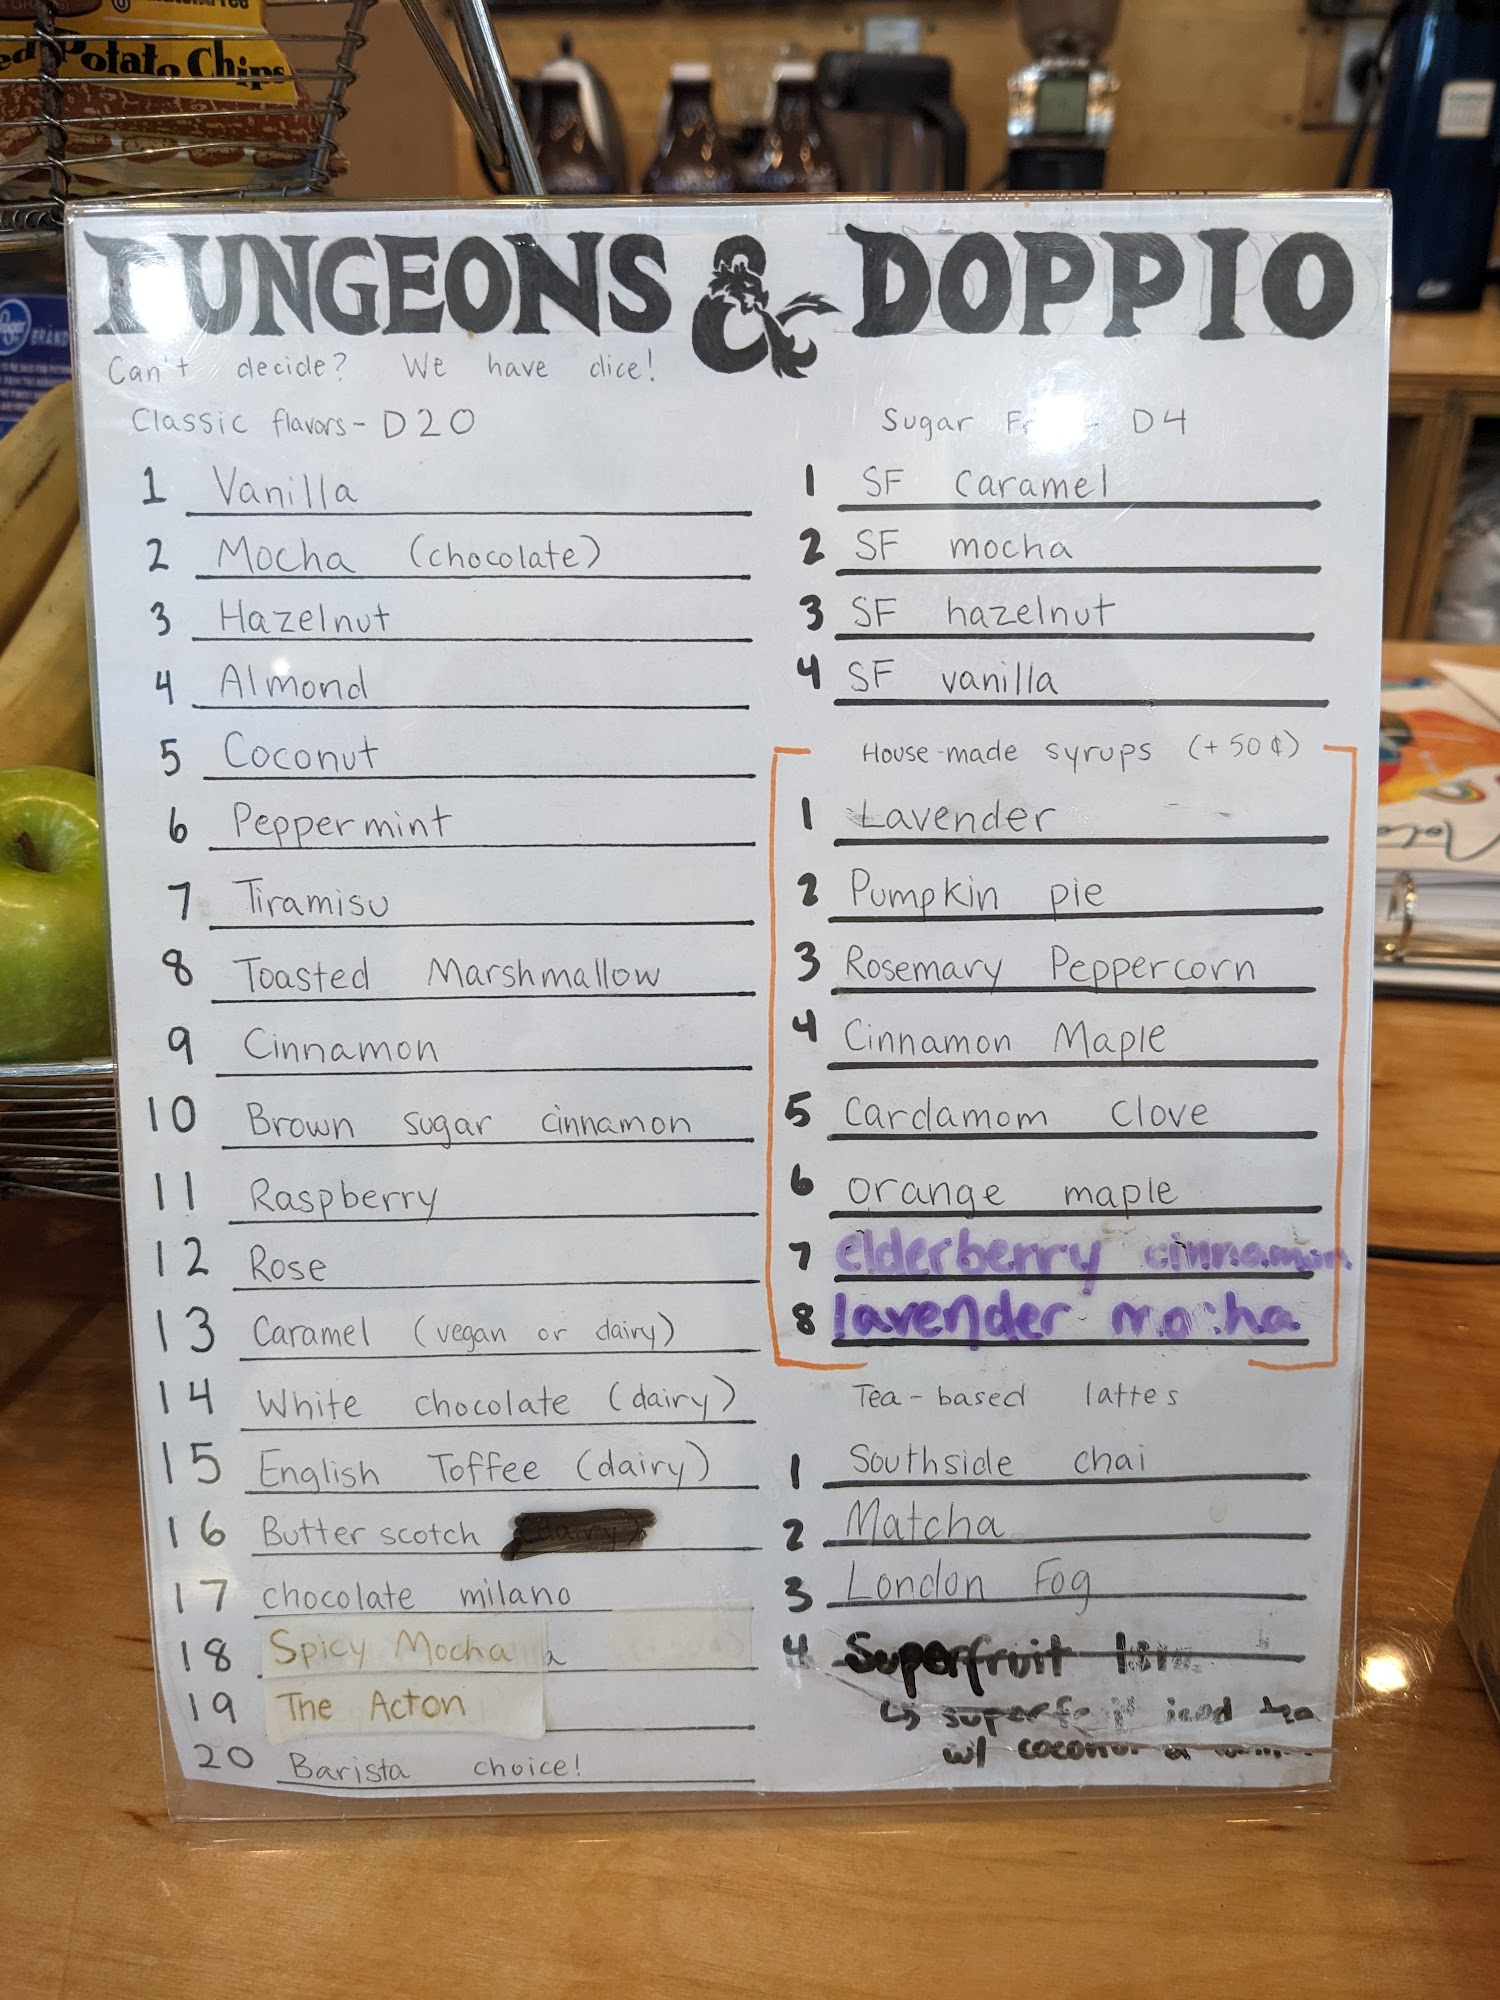 Potato Chips
Kroger BRAND
DUNGEONS & DOPPIO
Can't decide? We have dice!
Classic flavors - D20
1 Vanilla
2 Mocha (chocolate)
3 Hazelnut
4 Almond
5 Coconut
6 Peppermint
7 Tiramisu
8 Toasted Marshmallow
9 Cinnamon
10 Brown sugar cinnamon
11 Raspberry
12 Rose
13 Caramel (vegan or dairy)
14 White chocolate (dairy)
15 English Toffee (dairy)
16 Butterscotch (dairy)
17 chocolate milano
18 Spicy Mocha
19 The Acton
20 Barista choice!
Sugar - D4
1 SF caramel
2 SF mocha
3 SF hazelnut
4 SF vanilla
House-made syrups (+50¢)
1 Lavender
2 Pumpkin pie
3 Rosemary Peppercorn
4 Cinnamon Maple
5 Cardamom Clove
6 orange maple
7 elderberry cinnamon
8 lavender mocha
Tea-based lattes
1 Southside chai
2 Matcha
3 London Fog
4 Superfruit
↳ superfruit iced tea
w/ coconut